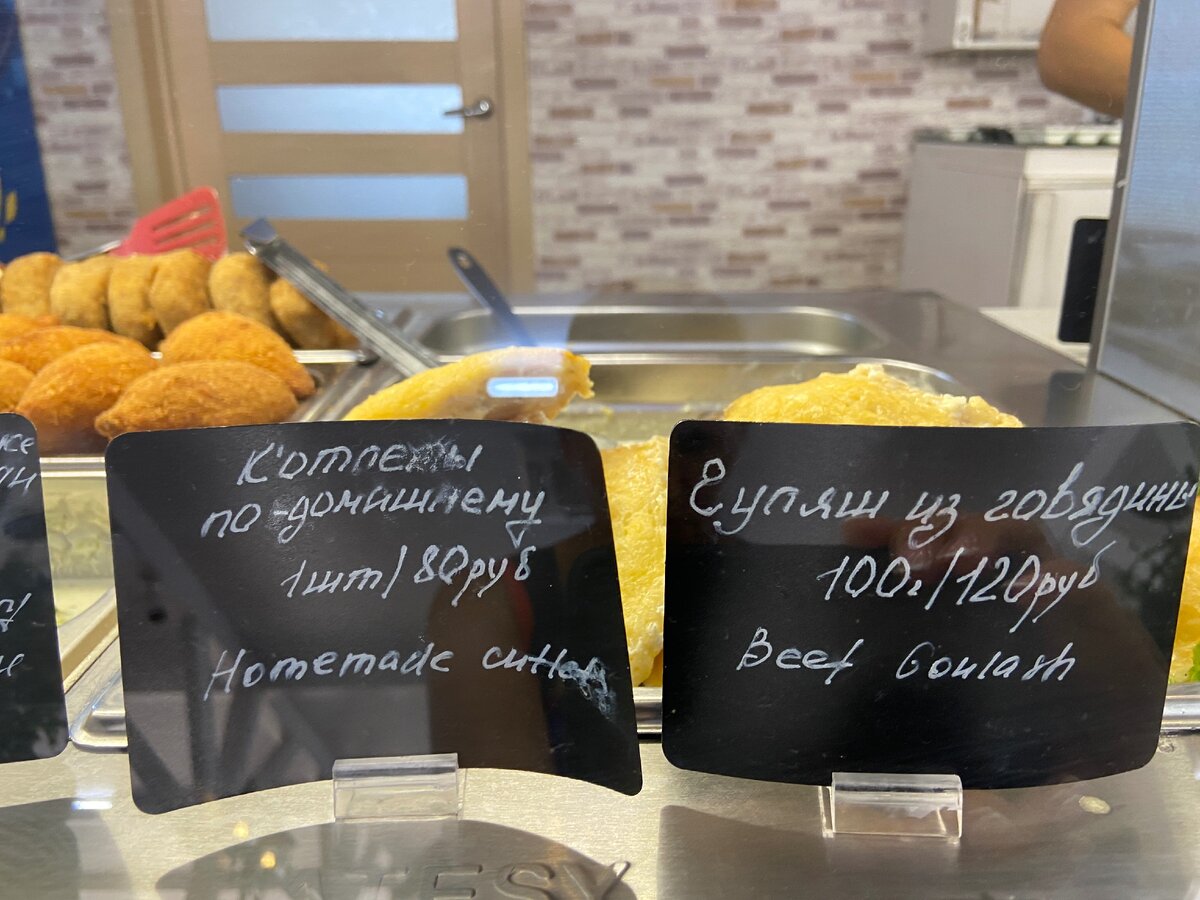 Котлеты
по-домишнему
1шт/80руб
Homemade cutlets
Гуляш из говядины
100г/120руб
Beef Goulash